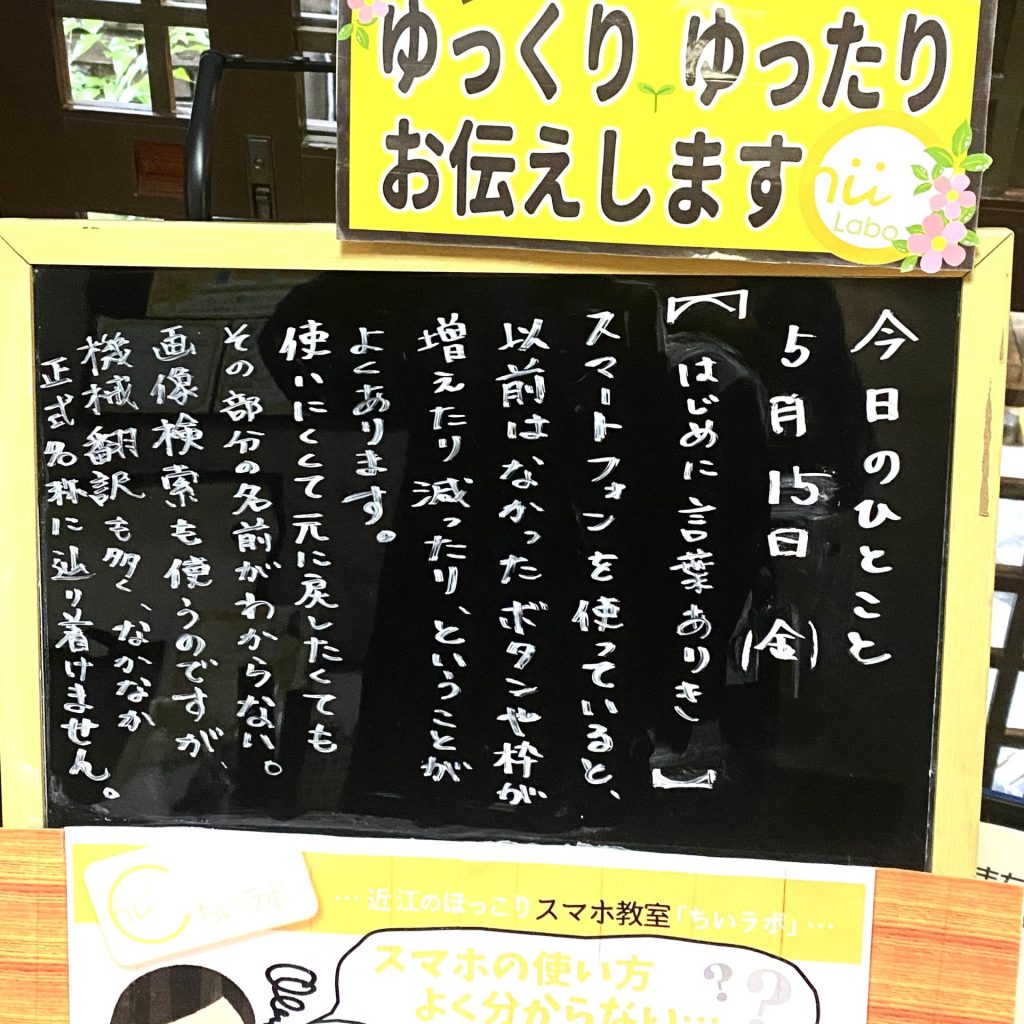 ゆっくり ゆったり
お伝えします
ちい
Labo
今日のひとこと
5月15日(金)
【はじめに言葉ありき】
スマートフォンを使っていると、
以前はなかったボタンや枠が
増えたり減ったり、ということが
よくあります。
使いにくくて元に戻したくても
その部分の名前がわからない。
画像検索も使うのですが、
機械翻訳も多く、なかなか
正式名称に辿り着けません。
ちい ちいラボ
…近江のほっこりスマホ教室「ちいラボ」…
スマホの使い方
よく分からない…
??